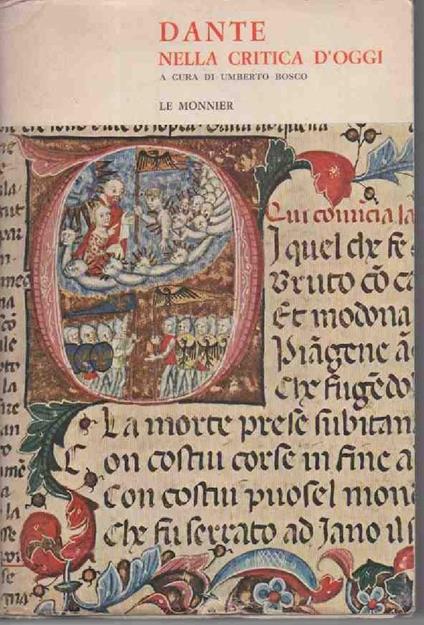 DANTE
NELLA CRITICA D'OGGI
A CURA DI UMBERTO BOSCO
LE MONNIER
Qui comīcia la
I quel che fe
Bruto cō ca
Et modona
Piāgene ā
Che fugēdo
La morte prese subitan
Con costui corse in fine a
Con costui puosel mon
Che fu serrato ad Iano il s